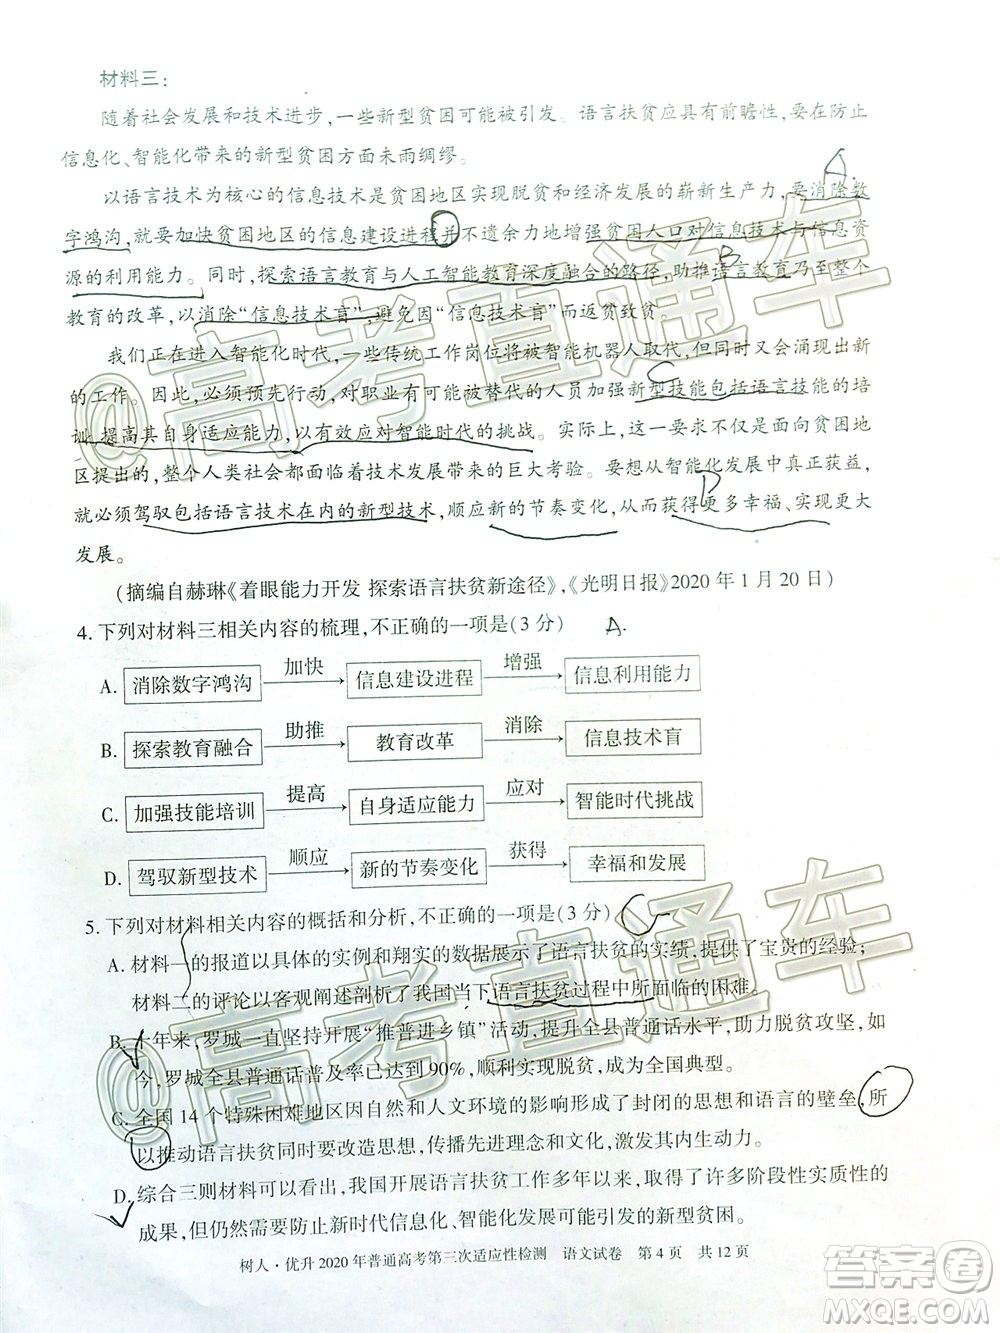 材料三：
随着社会发展和技术进步，一些新型贫困可能被引发。语言扶贫应具有前瞻性，要在防止
信息化、智能化带来的新型贫困方面未雨绸缪。
以语言技术为核心的信息技术是贫困地区实现脱贫和经济发展的崭新生产力，要消除数
字鸿沟，就要加快贫困地区的信息建设进程并不遗余力地增强贫困人口对信息技术与信息资
源的利用能力。同时，探索语言教育与人工智能教育深度融合的路径，助推语言教育乃至整个
教育的改革，以消除“信息技术盲”，避免因“信息技术盲”而返贫致贫。
我们正在进入智能化时代，一些传统工作岗位将被智能机器人取代，但同时又会涌现出新
的工作。因此，必须预先行动，对职业有可能被替代的人员加强新型技能包括语言技能的培
训，提高其自身适应能力，以有效应对智能时代的挑战。实际上，这一要求不仅是面向贫困地
区提出的，整个人类社会都面临着技术发展带来的巨大考验。要想从智能化发展中真正获益，
就必须驾驭包括语言技术在内的新型技术，顺应新的节奏变化，从而获得更多幸福、实现更大
发展。
（摘编自赫琳《着眼能力开发 探索语言扶贫新途径》，《光明日报》2020 年 1 月 20 日）
4. 下列对材料三相关内容的梳理，不正确的一项是（3 分） A.
A. 消除数字鸿沟 加快 信息建设进程 增强 信息利用能力
B. 探索教育融合 助推 教育改革 消除 信息技术盲
C. 加强技能培训 提高 自身适应能力 应对 智能时代挑战
D. 驾驭新型技术 顺应 新的节奏变化 获得 幸福和发展
5. 下列对材料相关内容的概括和分析，不正确的一项是（3 分） C
A. 材料一的报道以具体的实例和翔实的数据展示了语言扶贫的实绩，提供了宝贵的经验；
材料二的评论以客观阐述剖析了我国当下语言扶贫过程中所面临的困难。
B. 十年来，罗城一直坚持开展“推普进乡镇”活动，提升全县普通话水平，助力脱贫攻坚，如
今，罗城全县普通话普及率已达到 90%，顺利实现脱贫，成为全国典型。
C. 全国 14 个特殊困难地区因自然和人文环境的影响形成了封闭的思想和语言的壁垒，所
以推动语言扶贫同时要改造思想，传播先进理念和文化，激发其内生动力。
D. 综合三则材料可以看出，我国开展语言扶贫工作多年以来，取得了许多阶段性实质性的
成果，但仍然需要防止新时代信息化、智能化发展可能引发的新型贫困。
树人·优升 2020 年普通高考第三次适应性检测 语文试卷 第 4 页 共 12 页
@高考直通车
@高考直通车
答案圈
MXQE.COM